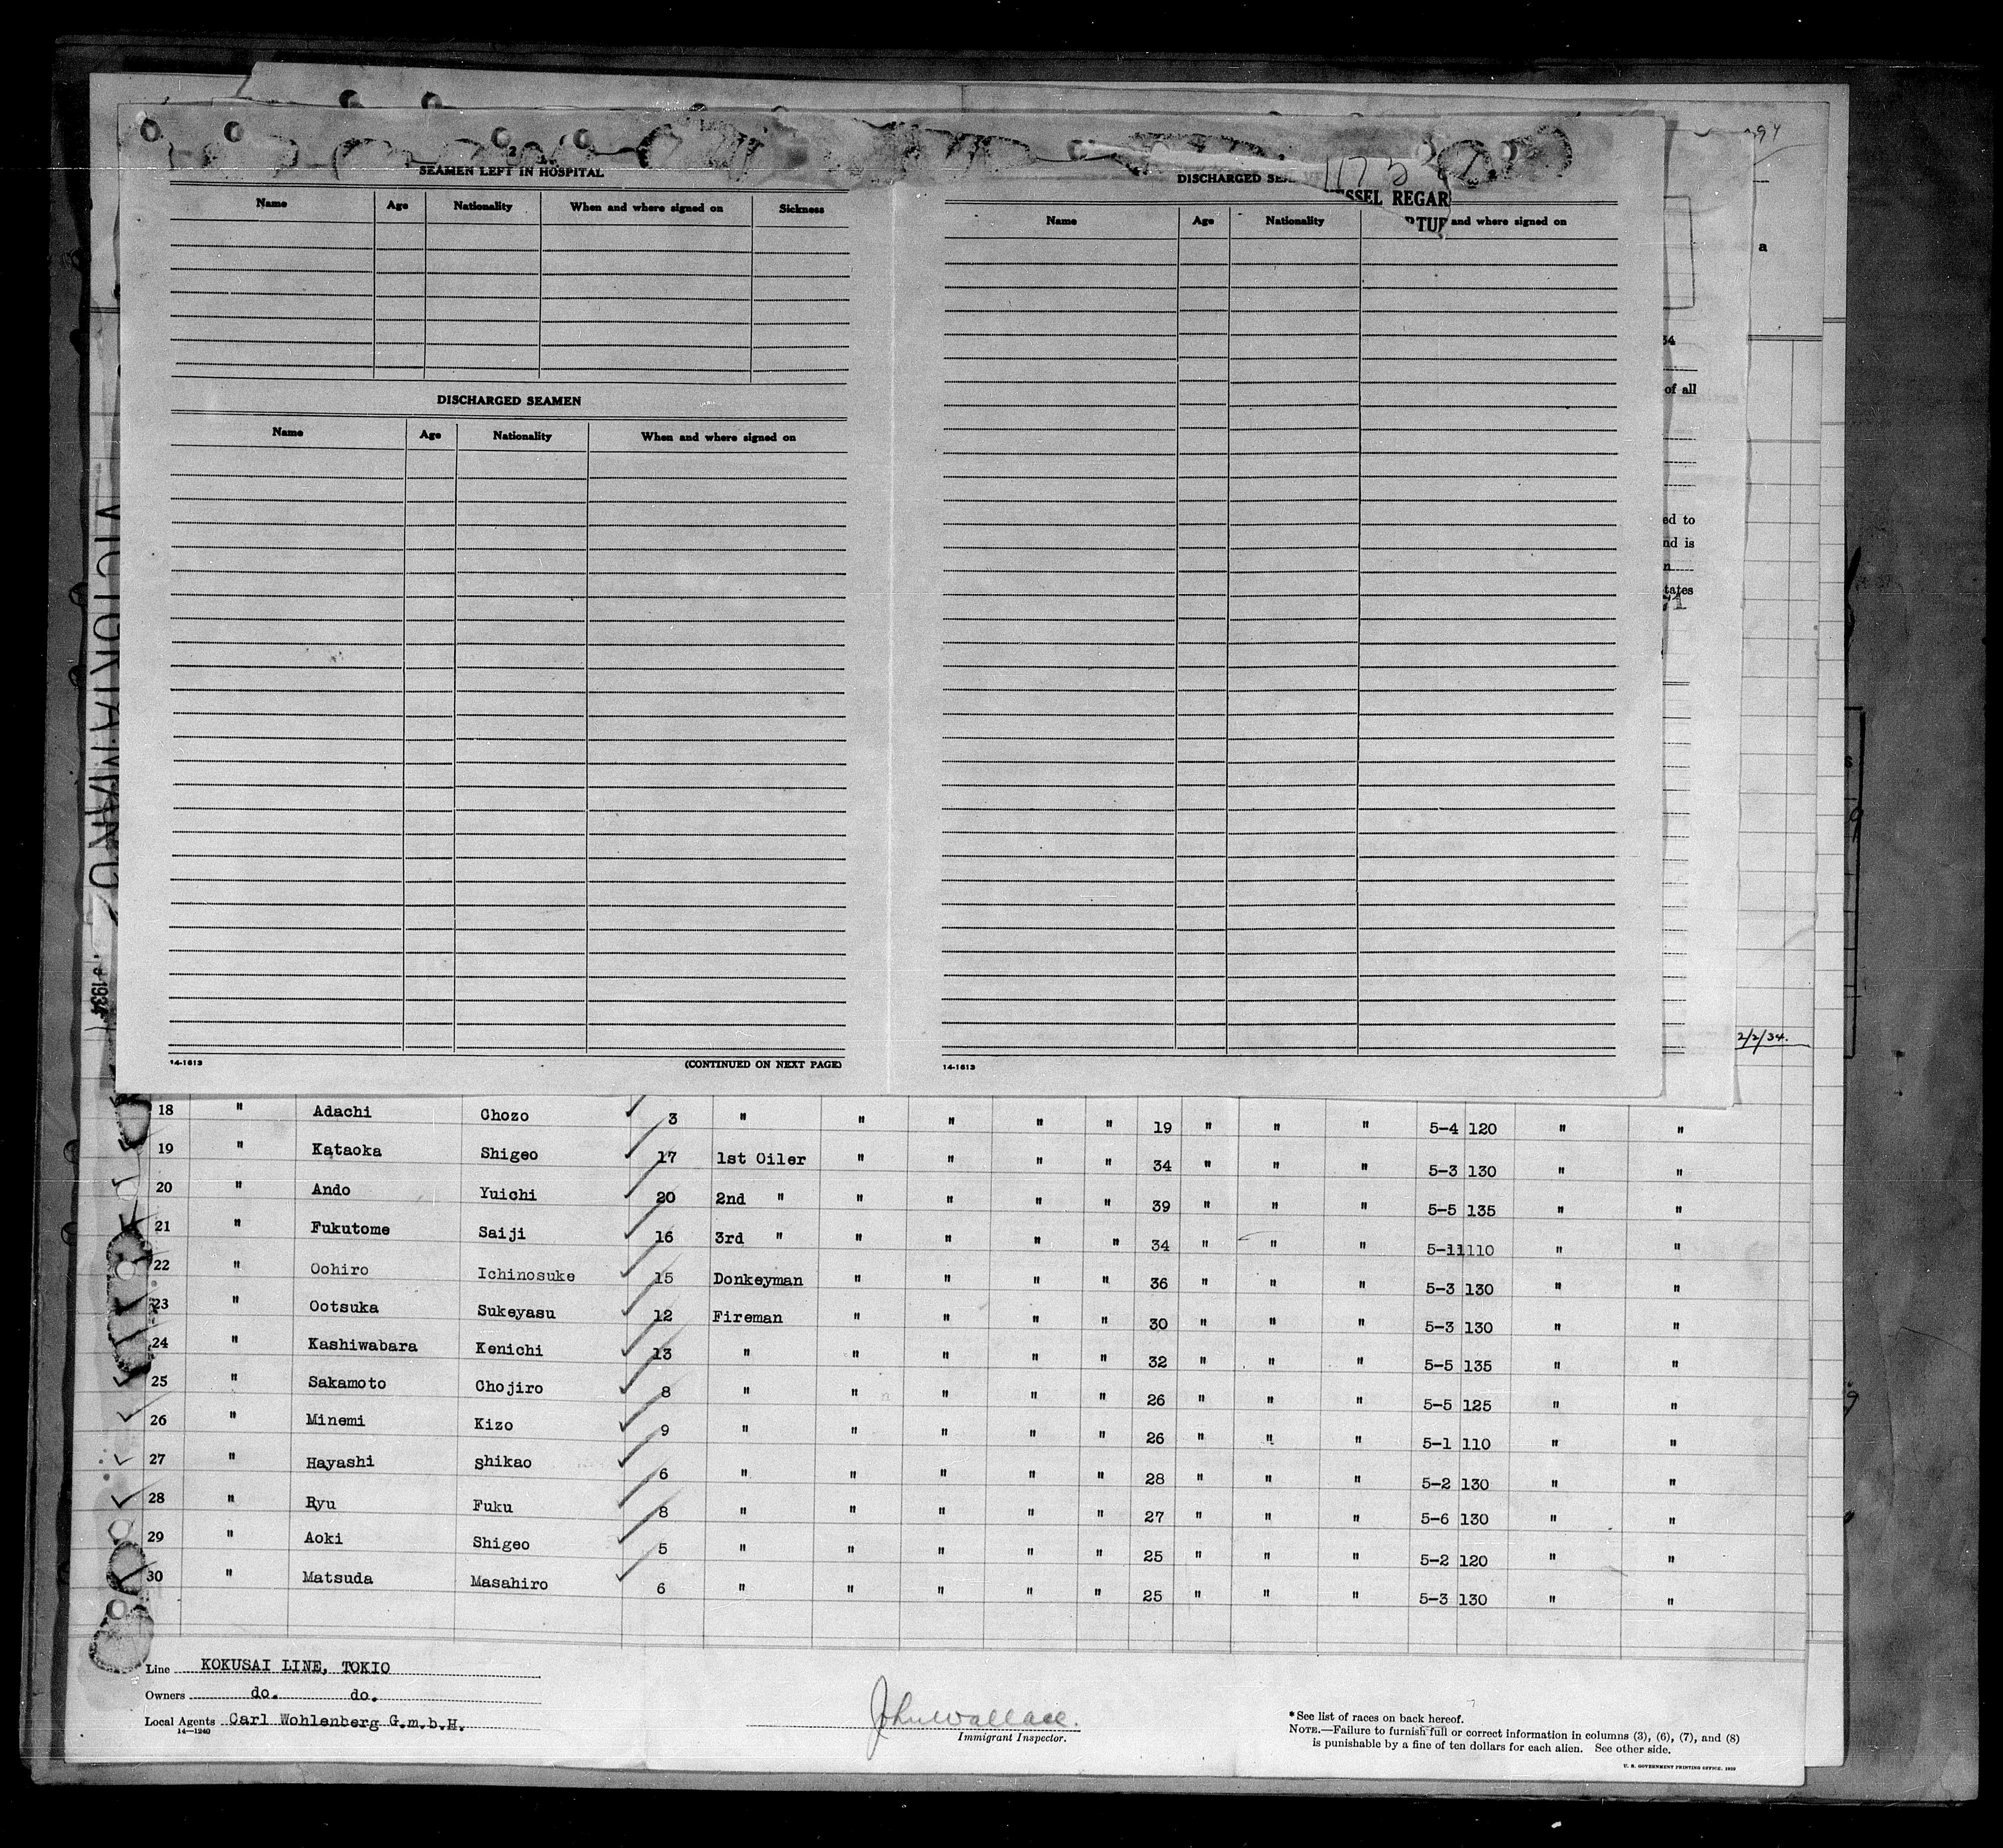 94
SEAMEN LEFT IN HOSPITAL
Name Age Nationality When and where signed on Sickness
DISCHARGED SEAMEN
Name Age Nationality When and where signed on
14-1613 (CONTINUED ON NEXT PAGE)
DISCHARGED
SSEL REGAR
Name Age Nationality and where signed on
14-1613
a
34
of all
ed to
nd is
n
tates
2/2/34.
VICTORIA MARU
1934
18 " Adachi Chozo 3 " " " " " 19 " " " 5-4 120 " "
19 " Kataoka Shigeo 17 1st Oiler " " " " 34 " " " 5-3 130 " "
20 " Ando Yuichi 20 2nd " " " " " 39 " " " 5-5 135 " "
21 " Fukutome Saiji 16 3rd " " " " " 34 " " " 5-11 110 " "
22 " Oohiro Ichinosuke 15 Donkeyman " " " " 36 " " " 5-3 130 " "
23 " Ootsuka Sukeyasu 12 Fireman " " " " 30 " " " 5-3 130 " "
24 " Kashiwabara Kenichi 13 " " " " " 32 " " " 5-5 135 " "
25 " Sakamoto Chojiro 8 " " " " " 26 " " " 5-5 125 " "
26 " Minemi Kizo 9 " " " " " 26 " " " 5-1 110 " "
27 " Hayashi Shikao 6 " " " " " 28 " " " 5-2 130 " "
28 " Ryu Fuku 8 " " " " " 27 " " " 5-6 130 " "
29 " Aoki Shigeo 5 " " " " " 25 " " " 5-2 120 " "
30 " Matsuda Masahiro 6 " " " " " 25 " " " 5-3 130 " "
Line KOKUSAI LINE, TOKIO
Owners do. do.
Local Agents Carl Wohlenberg G.m.b.H.
14-1240
John Wallace.
Immigrant Inspector.
*See list of races on back hereof.
NOTE.—Failure to furnish full or correct information in columns (3), (6), (7), and (8)
is punishable by a fine of ten dollars for each alien. See other side.
U. S. GOVERNMENT PRINTING OFFICE